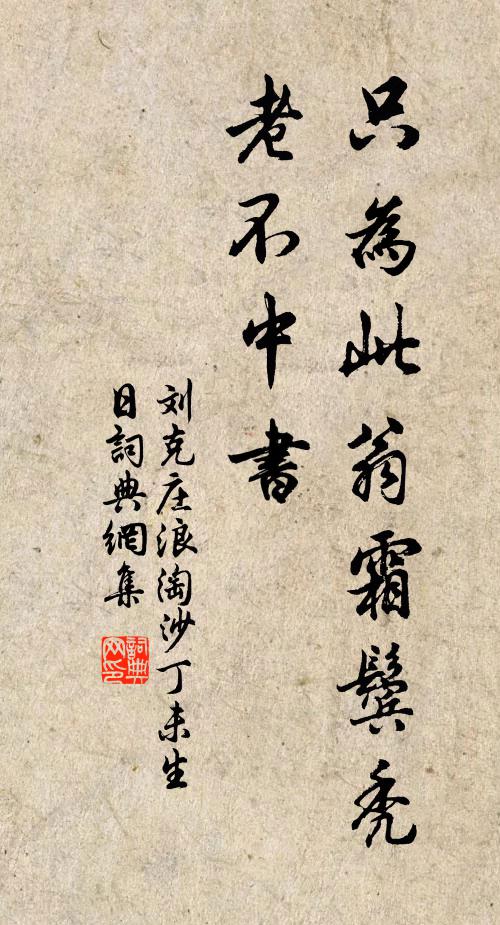 只為此翁霜鬓秃
老不中書
刘克庄浪淘沙丁未生
日詞典網集
詞典
网印